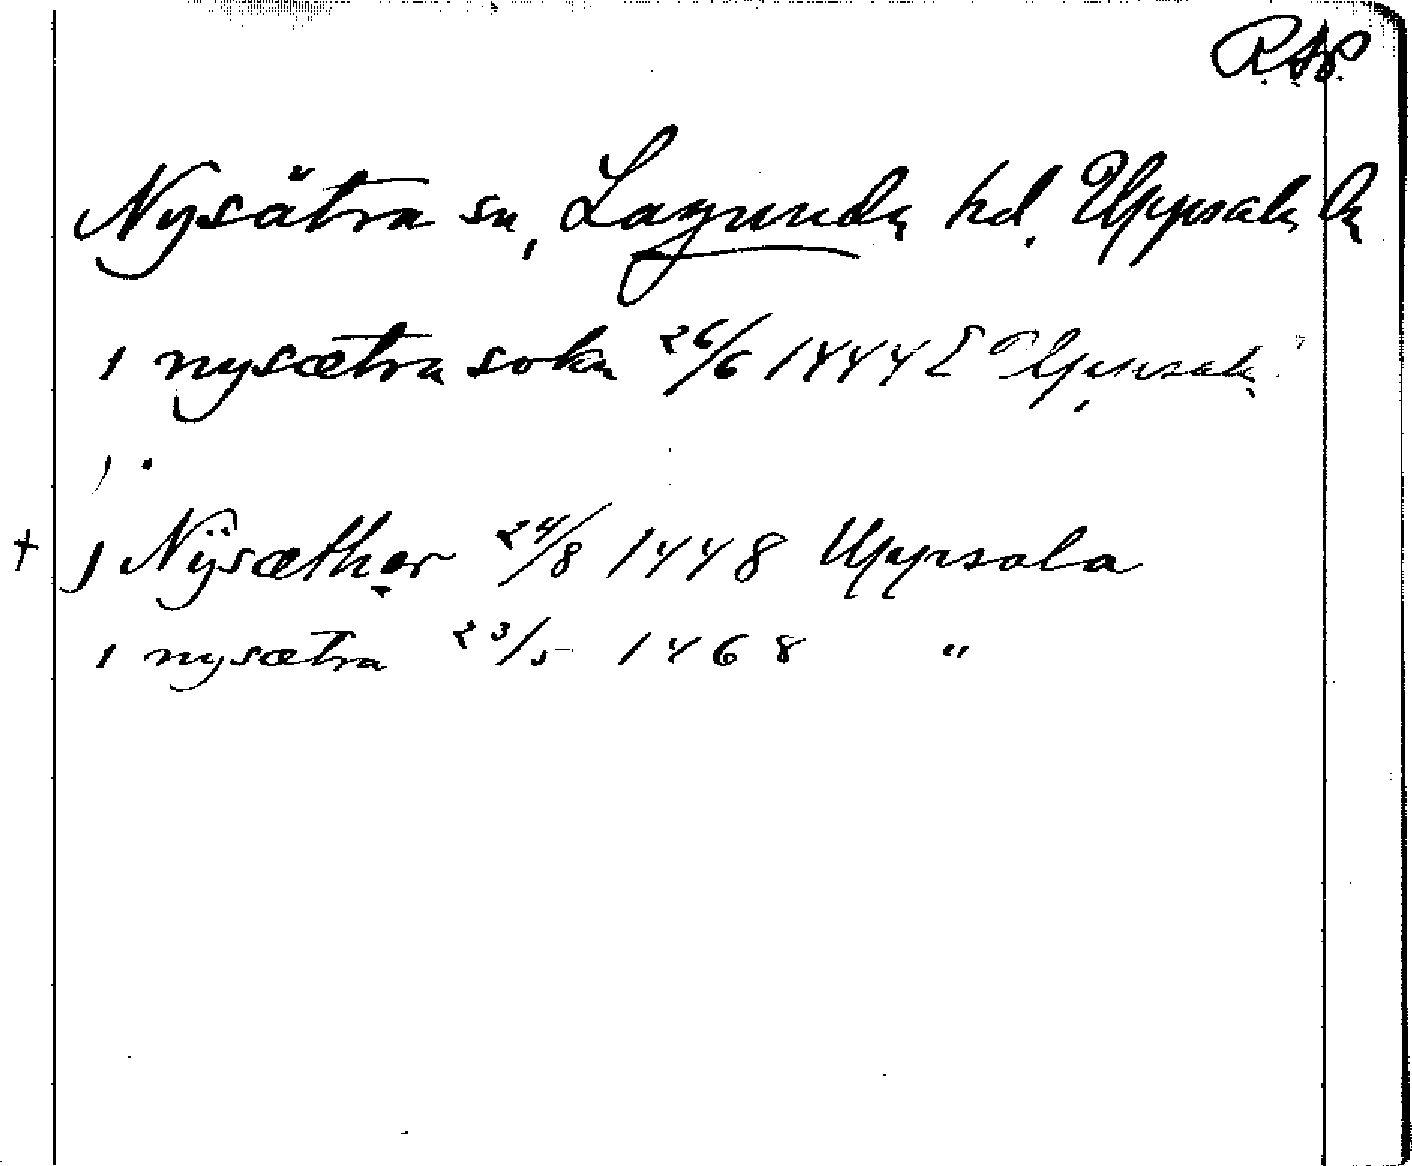 RAP.
Nysätra sn, Lagunda hd. Uppsala ln
i nysætra sokn 26/6 1444 Uppsala
j Nÿsæther 24/8 1448 Uppsala
i nysætra 23/5 1468 "